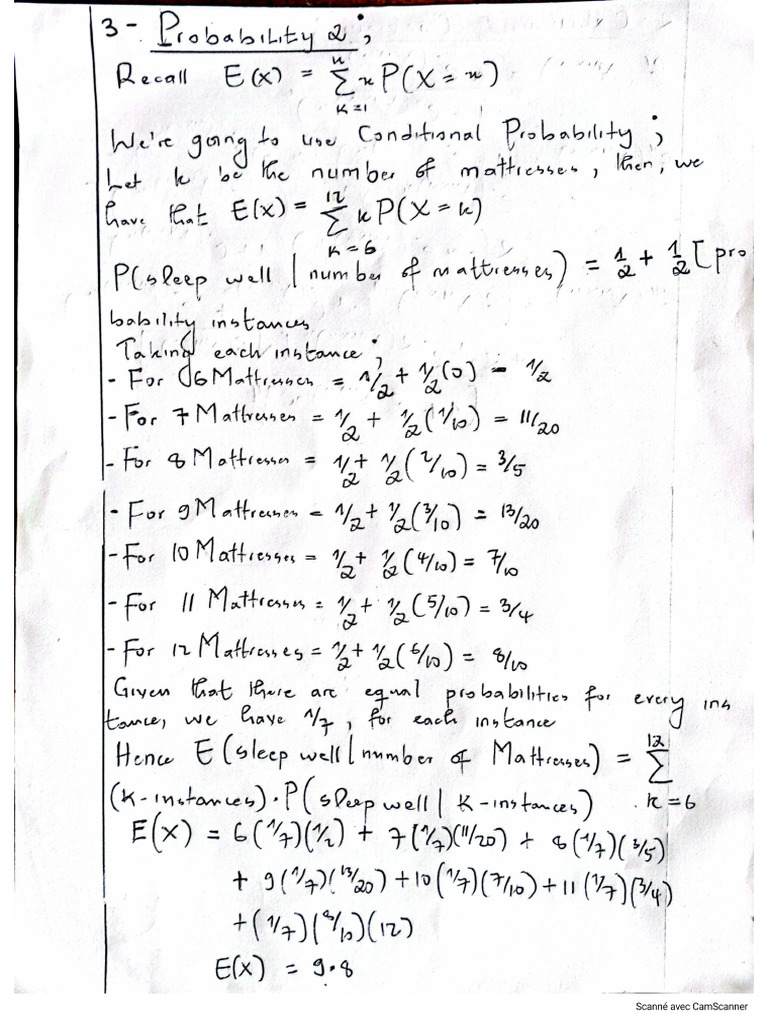 3- Probability 2 ;
Recall E(x) = n Σ k=1 x P(X = x)
We're going to use Conditional Probability ;
Let k be the number of mattresses, then, we
have that E(x) = 12 Σ k=6 k P(X = k)
P(sleep well | number of mattresses) = 1/2 + 1/2 [pro
bability instances
Taking each instance ;
- For 6 Mattresses = 1/2 + 1/2(0) = 1/2
- For 7 Mattresses = 1/2 + 1/2(1/10) = 11/20
- For 8 Mattresses = 1/2 + 1/2(2/10) = 3/5
- For 9 Mattresses = 1/2 + 1/2(3/10) = 13/20
- For 10 Mattresses = 1/2 + 1/2(4/10) = 7/10
- For 11 Mattresses = 1/2 + 1/2(5/10) = 3/4
- For 12 Mattresses = 1/2 + 1/2(6/10) = 8/10
Given that there are equal probabilities for every ins
tance, we have 1/7, for each instance
Hence E(sleep well | number of Mattresses) = 12 Σ k=6
(k-instances).P(sleep well | k-instances)
E(x) = 6(1/7)(1/2) + 7(1/7)(11/20) + 8(1/7)(3/5)
+ 9(1/7)(13/20) + 10(1/7)(7/10) + 11(1/7)(3/4)
+ (1/7)(8/10)(12)
E(x) = 9.8
Scanné avec CamScanner